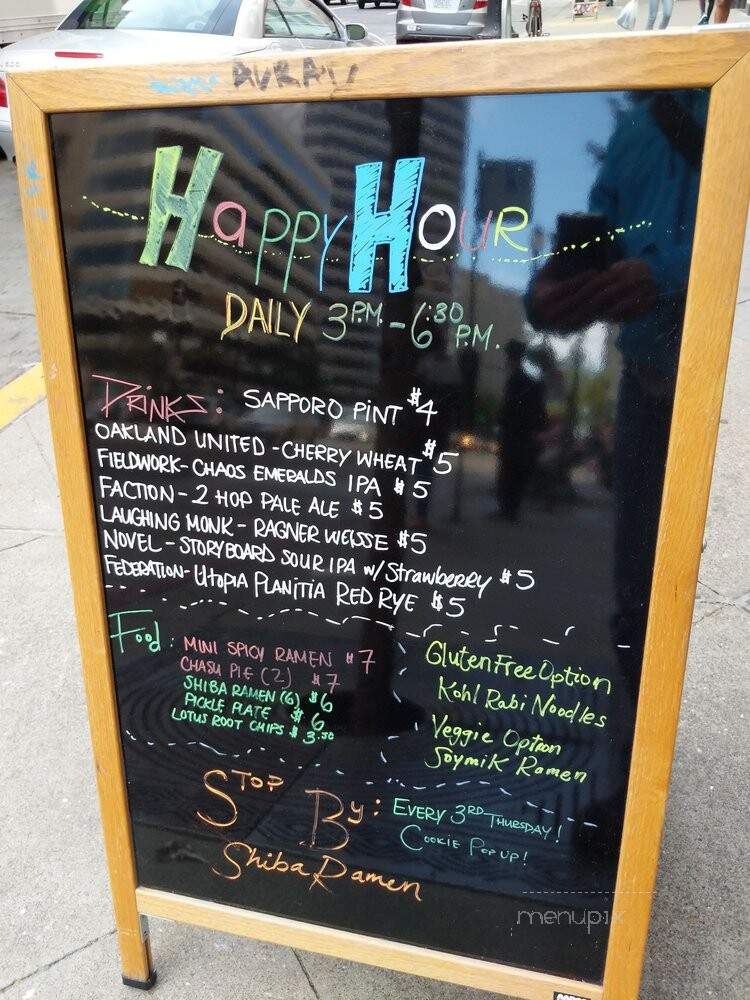 HAPPY HOUR
DAILY 3 P.M. - 6:30 P.M.
DRINKS: SAPPORO PINT $4
OAKLAND UNITED - CHERRY WHEAT $5
FIELDWORK - CHAOS EMERALDS IPA $5
FACTION - 2 HOP PALE ALE $5
LAUGHING MONK - RAGNER WEISSE $5
NOVEL - STORYBOARD SOUR IPA W/ Strawberry $5
FEDERATION - UTOPIA PLANITIA RED RYE $5
Food: MINI SPICY RAMEN $7
CHASU PIE (2) $7
SHIBA RAMEN (G) $6
PICKLE PLATE $6
LOTUS ROOT CHIPS $3.50
Gluten Free Option
Kohl Rabi Noodles
Veggie Option
Soymilk Ramen
STOP BY:
Shiba Ramen
EVERY 3RD THURSDAY!
COOKIE POP UP!
menupix